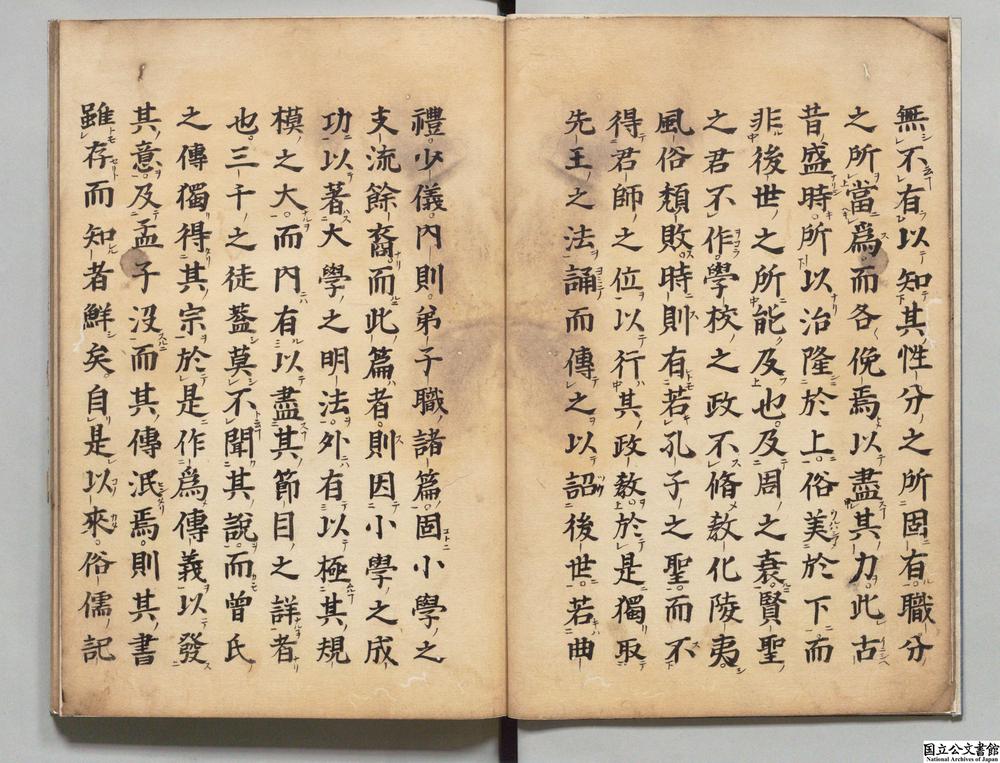 無不有以知其性分之所固有職分
之所當爲而各俛焉以盡其力此古
昔盛時所以治隆於上俗美於下而
非後世之所能及也及周之衰賢聖
之君不作學校之政不脩教化陵夷
風俗頽敗時則有若孔子之聖而不
得君師之位以行其政教於是獨取
先王之法誦而傳之以詔後世若曲
禮少儀内則弟子職諸篇固小學之
支流餘裔而此篇者則因小學之成
功以著大學之明法外有以極其規
模之大而内有以盡其節目之詳者
也三千之徒蓋莫不聞其說而曾氏
之傳獨得其宗於是作爲傳義以發
其意及孟子沒而其傳泯焉則其書
雖存而知者鮮矣自是以來俗儒記
国立公文書館
National Archives of Japan